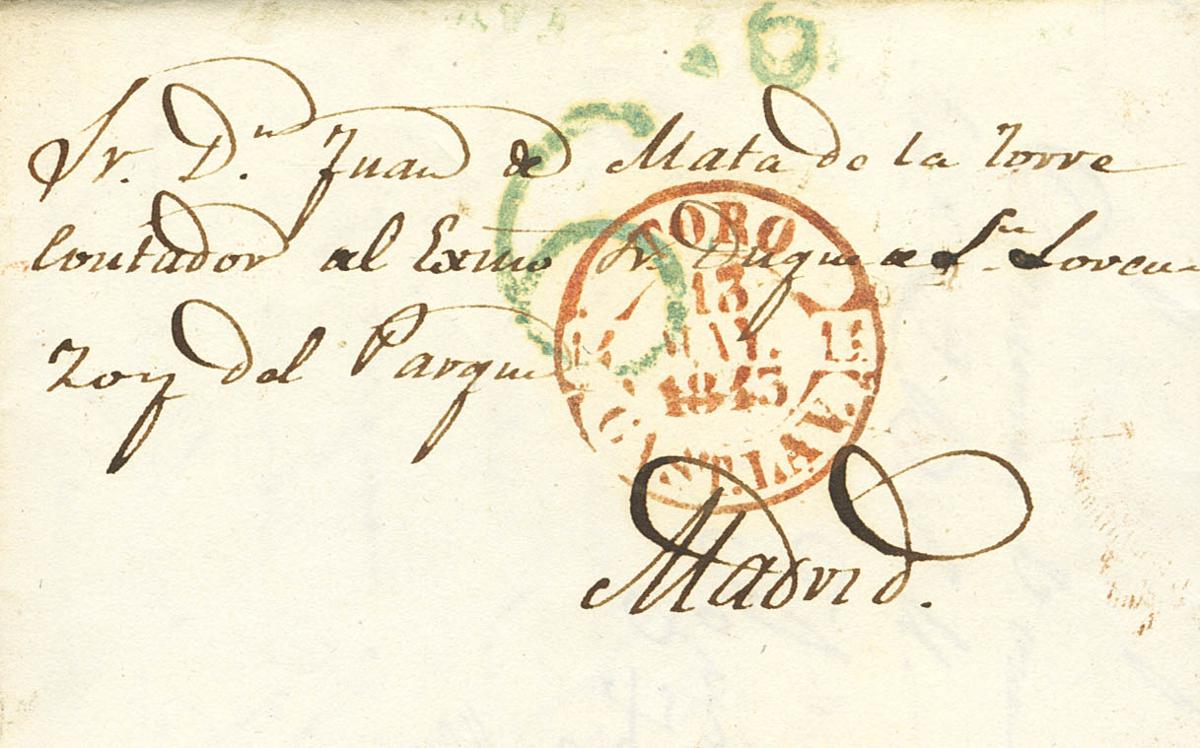 6
Sr. Dn. Juan de Mata de la Torre
Contador al Exmo Sr. Duque de Sn. Loren-
zo y del Parque
Madrid.
6
TORO
13
MAY.
1843
CAST.LA V.